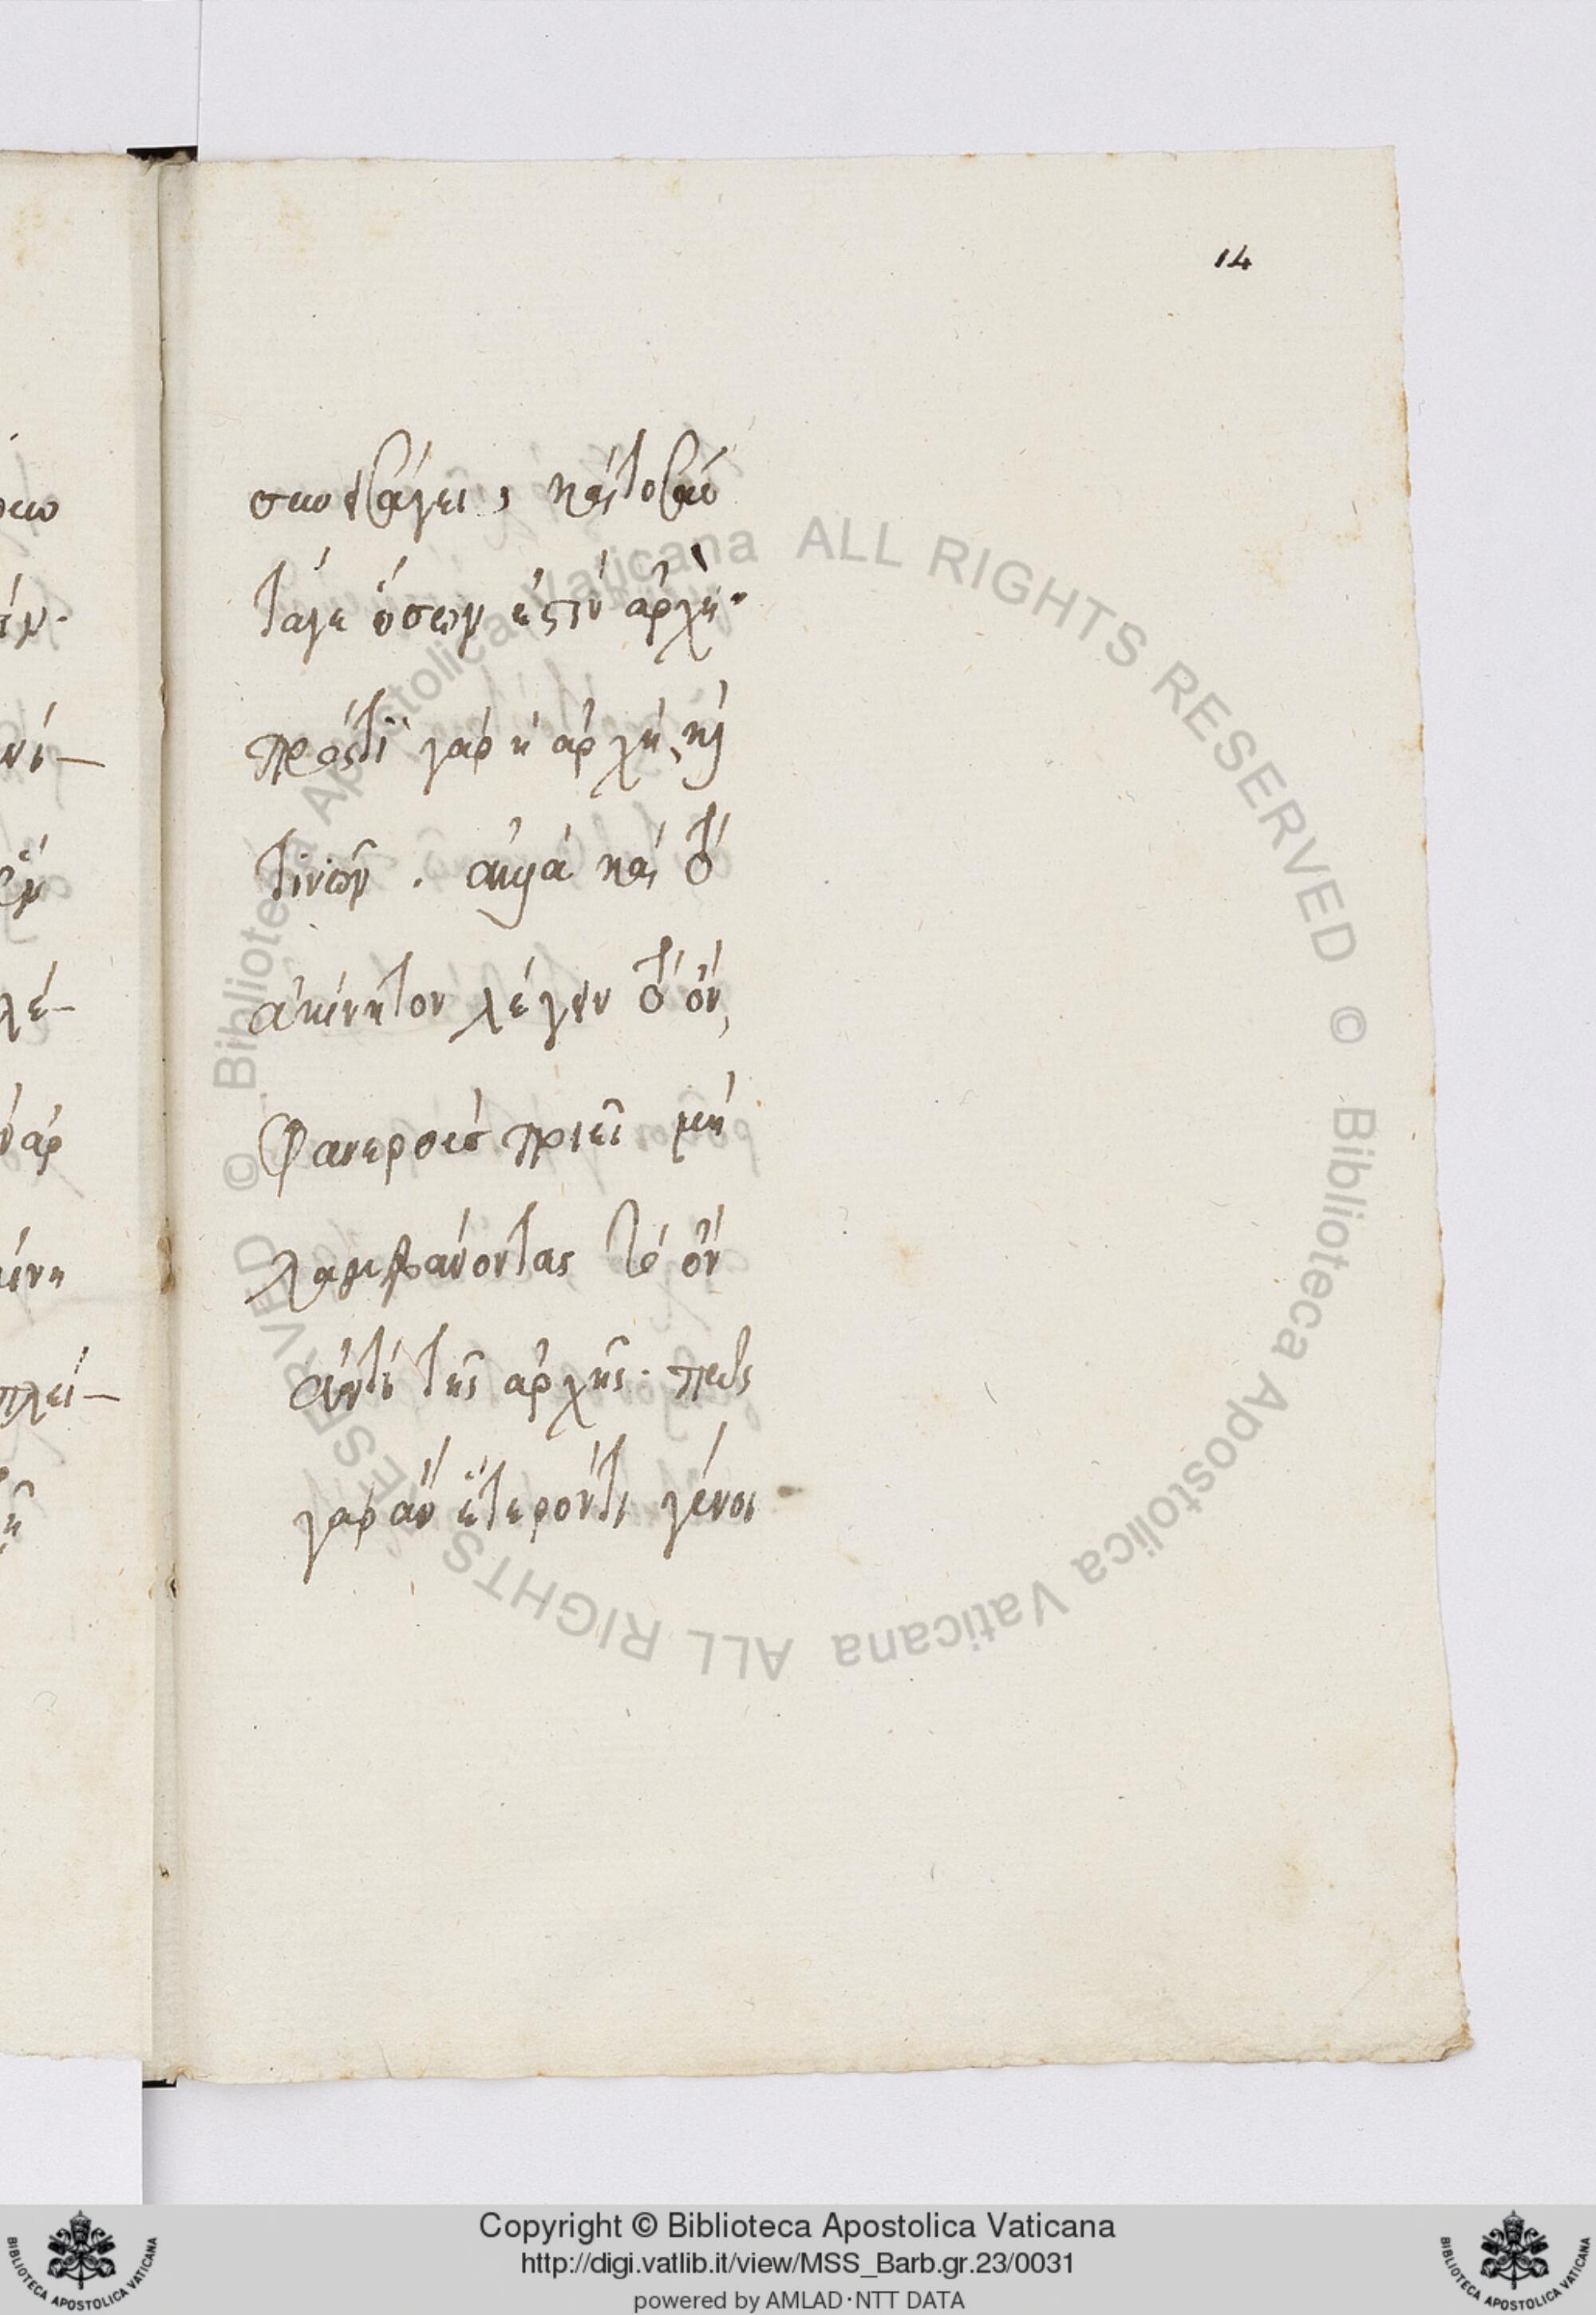 14
ταγε ὅσων ἐστὶν ἀρχή·
πρός τι γὰρ ἡ ἀρχή, καὶ
τινῶν. ἀλλὰ καὶ τὸ
ἀκίνητον λέγειν τὸ ὄν,
φανερὸς ποιεῖ μὴ
λαμβάνοντας τὸ ὂν
ἀντὶ τῆς ἀρχῆς· πρὸς
γὰρ ἂν ἕτερόν τι γένοι
© Biblioteca Apostolica Vaticana ALL RIGHTS RESERVED © Biblioteca Apostolica Vaticana ALL RIGHTS RESERVED
Copyright © Biblioteca Apostolica Vaticana
http://digi.vatlib.it/view/MSS_Barb.gr.23/0031
powered by AMLAD·NTT DATA
BIBLIOTECA APOSTOLICA VATICANA
BIBLIOTECA APOSTOLICA VATICANA